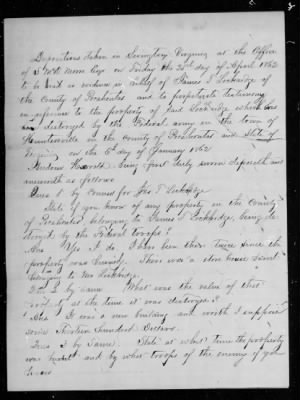 Depositions taken in Lexington Virginia at the Office
of S McD Moore Esqr on Friday the 25th day of April 1862
to be read as evidence in behalf of James T Lockridge of
the County of Pocahontas and to perpetuate testimony
in reference to the property of said Lockridge which was
destroyed by the Federal army in the town of
Huntersville in the County of Pocahontas and State of
Virginia on the 3d day of January 1862
Andrew Herold being first duly sworn deposeth and
answereth as follows
Ques 1 by Counsel for Jas T Lockridge
State if you know of any property in the County
of Pocahontas, belonging to James T Lockridge, being de
stroyed by the Federal troops?
Ans Yes I do I have been there twice since the
property was burned. There was a store house burnt
belonging to Mr Lockridge.
Ques 2 by same What was the value of this
at the time it was destroyed?
Ans It was a new building and worth I suppose
some Thirteen hundred Dollars.
Ques 3 by Same. State at what time the property
was burnt and by what troops of the enemy if you
know